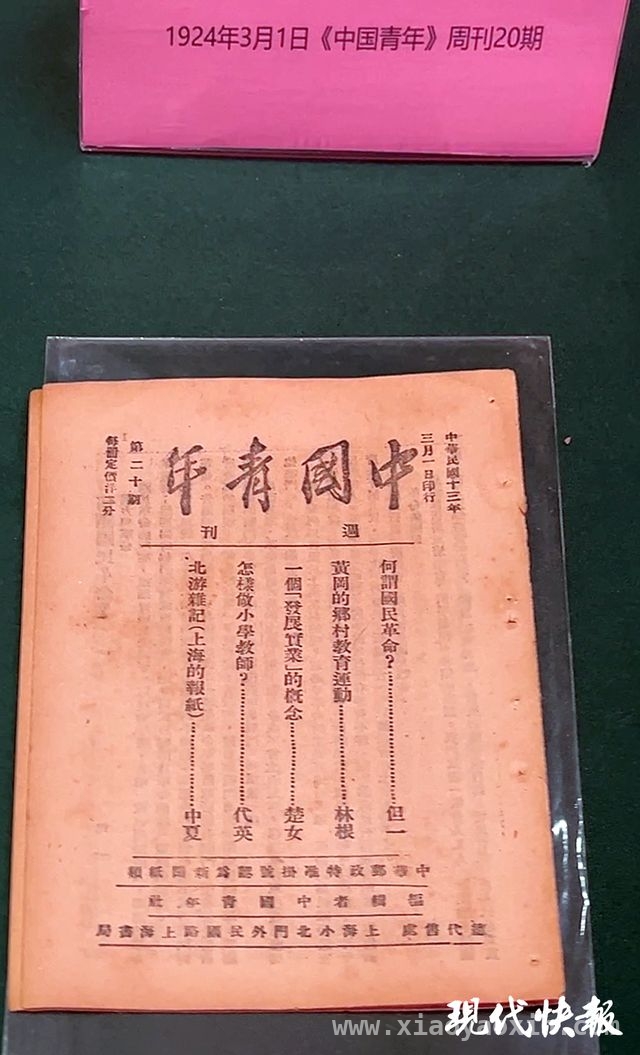 1924年3月1日《中国青年》周刊20期
中華民國十三年
三月一日印行
中國青年
週刊
第二十期
每冊定價洋二分
何謂國民革命？…………但一
黃岡的鄉村教育運動…………林根
一個「發展實業」的概念…………楚女
怎樣做小學教師？…………代英
北游雜記（上海的報紙）…………中夏
中華郵政特准掛號認爲新聞紙類
編輯者中國青年社
總代售處 上海小北門外民國路上海書局
现代快报
www.xiaoyaoxin.com